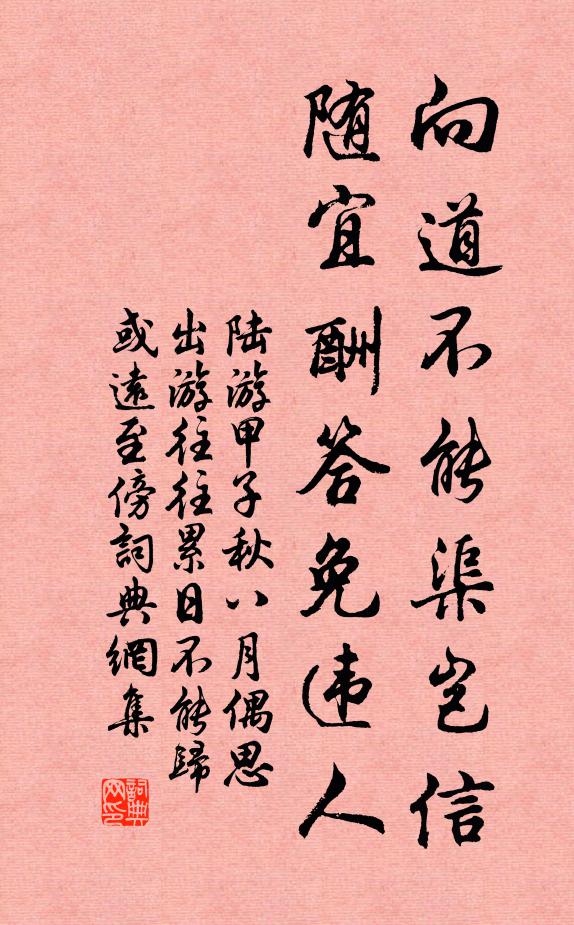 向道不能渠岂信
随宜酬答免违人
陆游甲子秋八月偶思
出游往往累日不能歸
或遠至傍詞典網集
詞典网印